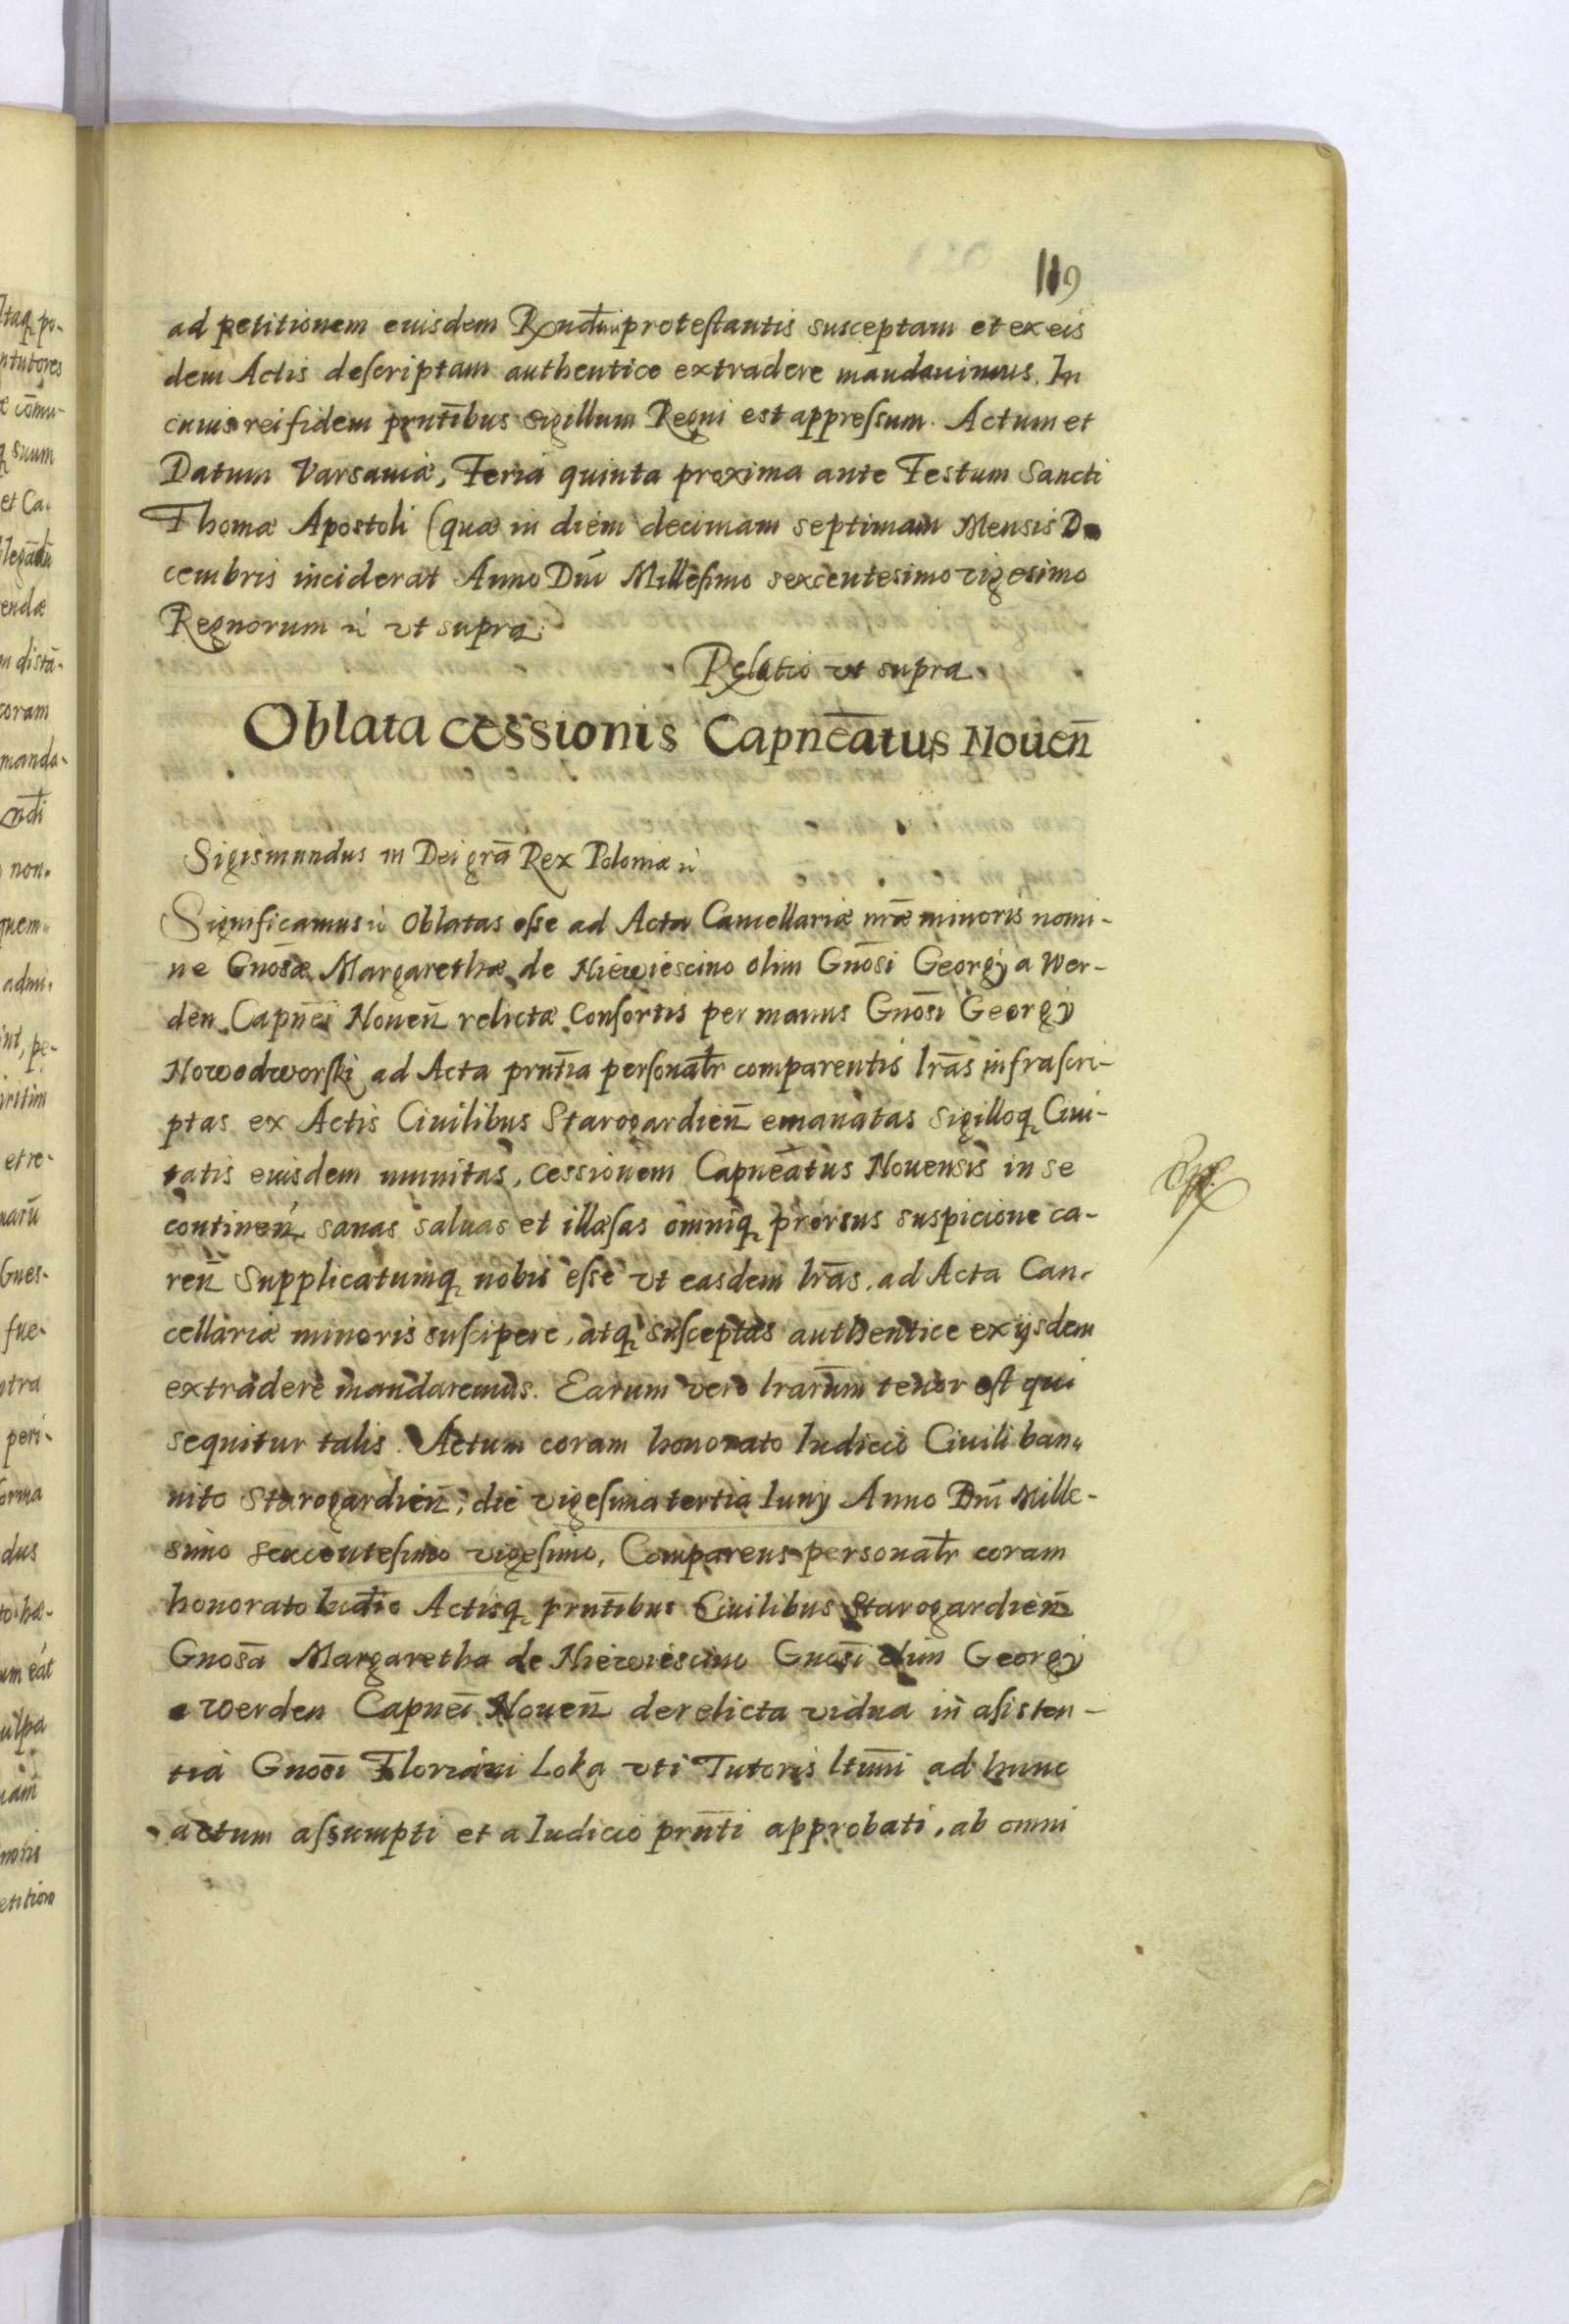 119
ad petitionem euisdem Rndi protestantis susceptam et ex eis
dem Actis descriptam authentice extradere mandauimus. In
cuius rei fidem prntibus sigillum Regni est appressum. Actum et
Datum Varsauiæ, Feria quinta proxima ante Festum Sancti
Thomæ Apostoli (quæ in diem decimam septimam Mensis De
cembris inciderat Anno Dni Millesimo sexcentesimo vigesimo
Regnorum ut supra.
Relatio ut supra
Oblata cessionis Capneatus Nouen̄
Sigismundus III Dei grā Rex Poloniæ
Significamus Oblatas esse ad Acta Cancellariæ nrǣ minoris nomi-
ne Gnosæ Margarethæ de Niewiescino olim Gnōsi Georgÿ a Wer-
den Capnēi Nouen̄ relictæ Consortis per manus Gnōsi Georgÿ
Nowodworski ad Acta prntīa personalr comparentis lrās infrascri-
ptas ex Actis Ciuilibus Starogardien̄ emanatas sigilloq Ciui-
tatis eiusdem munitas, cessionem Capneātus Nouensis in se
continen̄ sanas saluas et illæsas omniq prorsus suspicione ca-
ren̄ Supplicatumq nobis esse ut easdem lrās ad Acta Can-
cellariæ minoris suscipere, atq susceptas authentice ex ijsdem
extradere mandaremus. Earum vero lrarūm tenor est qui
sequitur talis. Actum coram honorato Iudicio Ciuili ban-
nito Starogardien̄, die vigesima tertia Iunÿ Anno Dnī Mille-
simo sexcentesimo vigesimo, Comparens personalr coram
honorato Iudīo Actisq prntībus Ciuilibus Starogardien̄
Gnosā Margaretha de Niewiescino Gnosī olim Georgÿ
a Werden Capneī Nouen̄ derelicta vidua in asisten-
tia Gnosī Floriani Loka uti Tutoris ltimī ad hunc
actum assumpti et a Iudicio prnti approbati, ab omni